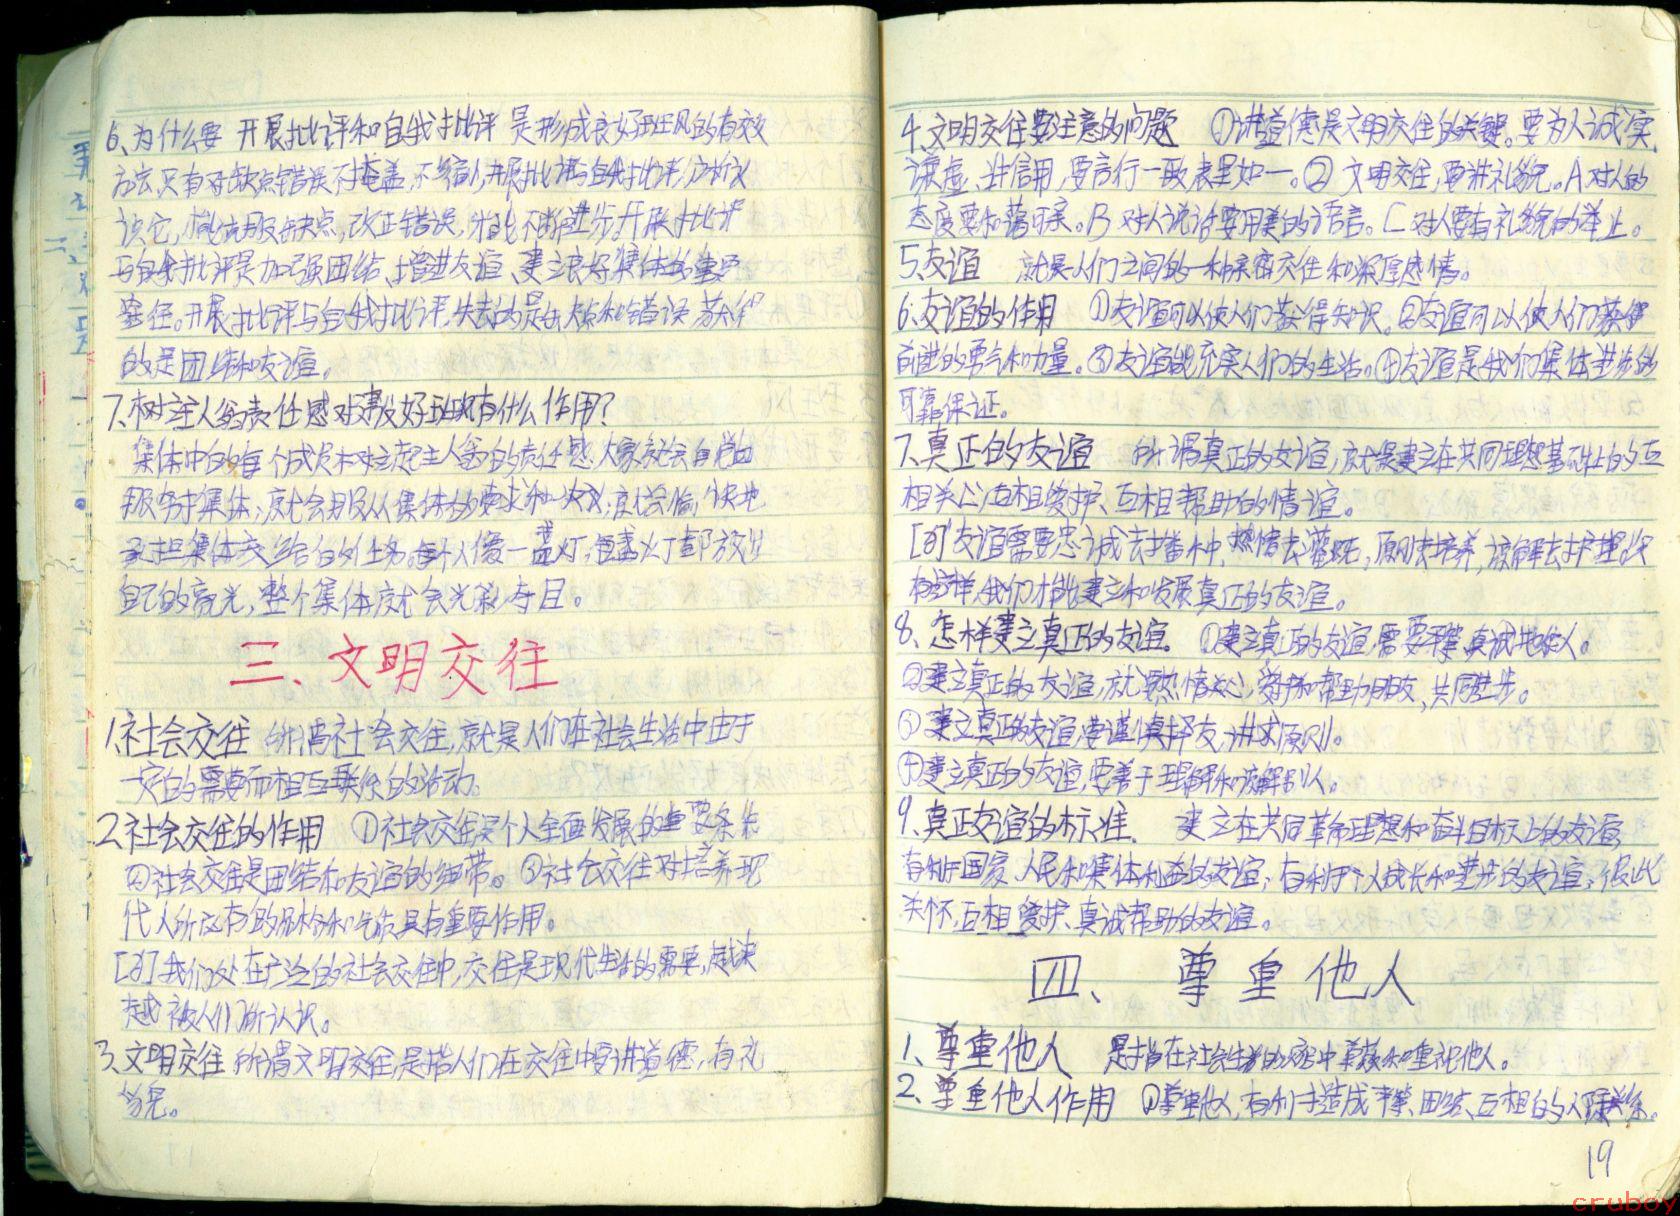 6、为什么要 开展批评和自我批评 是形成良好班风的有效
方法只有对缺点错误不掩盖,不缩小,开展批评与自我批评,分析认
识它,才能克服缺点,改正错误,才能不断进步。开展批评
与自我批评是加强团结、增进友谊、建立良好集体的重要
途径。开展批评与自我批评,失去的是缺点和错误 获得
的是团结和友谊。
7、树主人翁责任感对建设好班级有什么作用?
集体中的每个成员树立起主人翁的责任感,大家就会自觉地
服务于集体,就会服从集体的要求和决议;就会愉快地
承担集体交给自的任务。每个人像一盏灯,每盏灯都放出
自己的亮光,整个集体就会光彩夺目。
三、文明交往
1、社会交往 所谓社会交往,就是人们在社会生活中由于
一定的需要而相互联系的活动。
2、社会交往的作用 ①社会交往是个人全面发展的重要条件
②社会交往是团结和友谊的纽带。③社会交往对培养现
代人所应有的品格和气质具有重要作用。
我们处在广泛的社会交往中,交往是现代生活的需要,越来
越被人们所认识。
3、文明交往 所谓文明交往,是指人们在交往中要讲道德,有礼
貌。
4、文明交往要注意的问题 ①讲道德是文明交往的关键。要为人诚实
谦虚、讲信用,要言行一致 表里如一。② 文明交往,要讲礼貌。A 对人的
态度要和蔼可亲。B 对人说话要用美的语言。C 对人要有礼貌的举止。
5、友谊 就是人们之间的一种亲密交往和深厚感情。
6、友谊的作用 ①友谊可以使人们获得知识。②友谊可以使人们获得
前进的勇气和力量。③友谊能充实人们的生活。④友谊是我们集体进步的
可靠保证。
7、真正的友谊 所谓真正的友谊,就是建立在共同理想基础上的互
相关心,互相爱护、互相帮助的情谊。
友谊需要忠诚去播种,热情去灌溉,原则去培养,谅解去护理。只
有这样,我们才能建立和发展真正的友谊。
8、怎样建立真正的友谊。 ①建立真正的友谊,需要平等,真诚地待人。
②建立真正的友谊,就要热情关心,爱护和帮助朋友,共同进步。
③建立真正的友谊,要谨慎择友,讲求原则。
④建立真正的友谊,要善于理解和谅解别人。
9、真正友谊的标准. 建立在共同革命理想和奋斗目标上的友谊;
有利于国家、人民和集体利益的友谊;有利于个人成长和进步的友谊;彼此
关怀,互相爱护、真诚帮助的友谊。
四、尊重他人
1、尊重他人 是指在社会生活中尊敬和重视他人。
2、尊重他人作用 ①尊重他人,有利于造成平等、团结、互相的人际关系.
19
cruboy